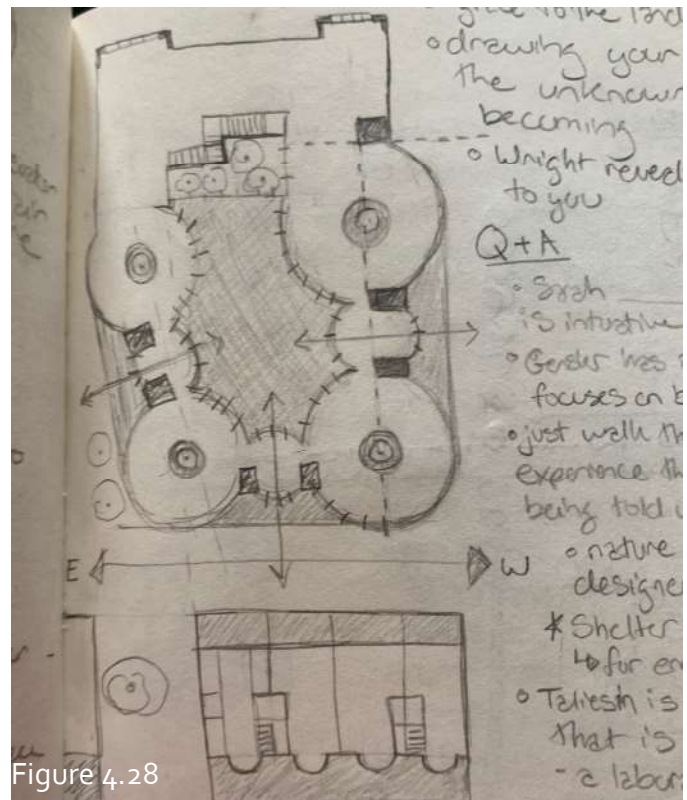 to the land
o drawing your
the unknown
becoming
o Wright reveal
to you
Q+A
o Sarah
is intuitive
o Gender has
focuses on b
o just walk th
experience th
being told
o nature
designe
E
W
* Shelter
↳ for en
o Taliesin is
that is
- a labor
Figure 4.28